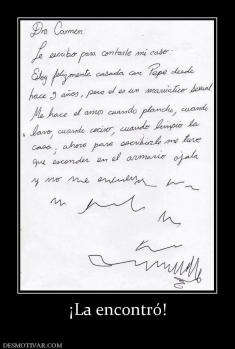 Dra Carmen:
Le escribo para contarle mi caso:
Estoy felizmente casada con Pepe desde
hace 3 años, pero él es un maniático sexual
Me hace el amor cuando plancho, cuando
lavo, cuando cocino, cuando limpio la
casa; ahora para escribirle me tuve
que esconder en el armario ojala
y no me encuentre
¡La encontró!
DESMOTIVAR.COM